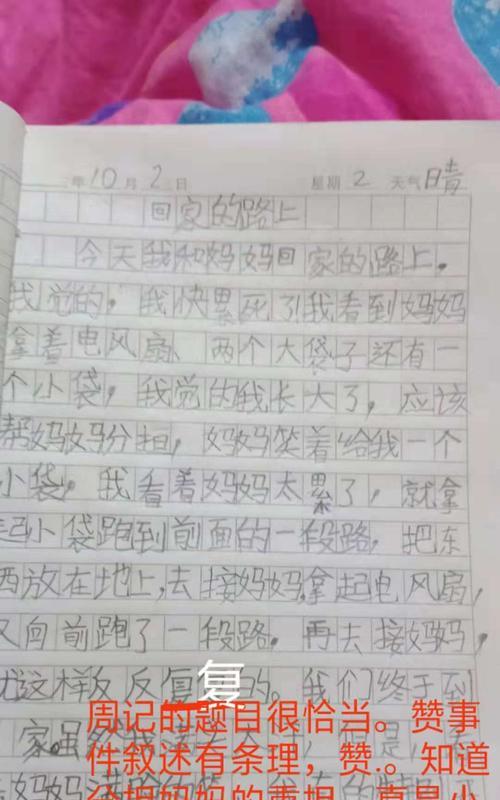 年10月2日 星期2 天气晴
回家的路上
今天我和妈妈回家的路上。
我觉的，我快累死了!我看到妈妈
拿着电风扇、两个大袋子还有一
个小袋，我觉的我长大了，应该
帮妈妈分担，妈妈笑着给我一个
小袋，我看着妈妈太累了，就拿
起小袋跑到前面的一段路，把东
西放在地上,去接妈妈,拿起电风扇，
又向前跑了一段路。再去接妈妈，
就这样反反复复的。我们终于到
家。虽然我
周记的题目很恰当。赞事
件叙述有条理，赞.。知道
分担妈妈的重担，真是小